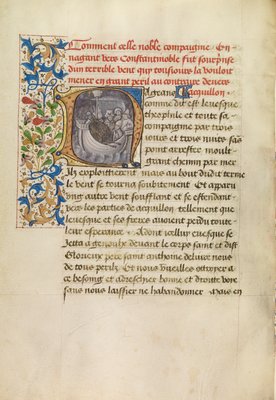 Comment celle noble compaigne En
nagant vers Constantinoble fut sourprise
dun terrible vent qui tousiours la vouloit
mener en grant peril au contraire de vers
Aigrans Dacquillon
comme dit est leuesque
theophile et toute sa
compaignie par trois
iours et trois nuits sãs
point arrester moult
grant chemin par mer
Ilz exploitterent mais au bout dudit terme
le vent se tourna soubitement Et apparu
ung autre vent soufflant et se estendant
vers les parties de acquillon tellement que
leuesque et ses freres auoient perdu toute
leur esperance Adont cellui euesque se
Jetta a genoulz deuant le corps saint et dist
Glorieux pere saint anthoine deliure nous
de tous perilz Et nous vueilles ottroyer a
ce besoing et adreschier bonne et droitte voye
sans nous laissier ne habandonner Mais en